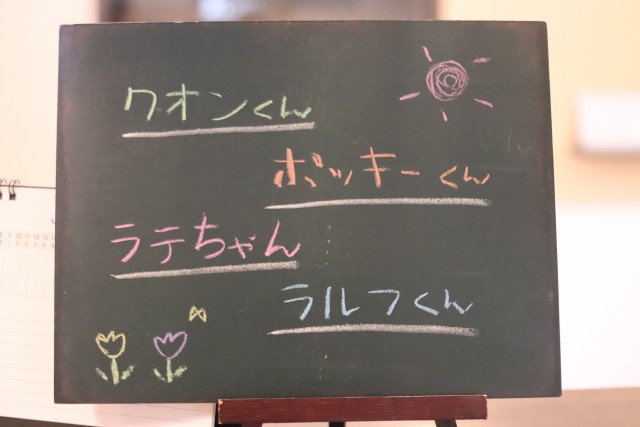 クオンくん
ポッキーくん
ラテちゃん
ラルフくん